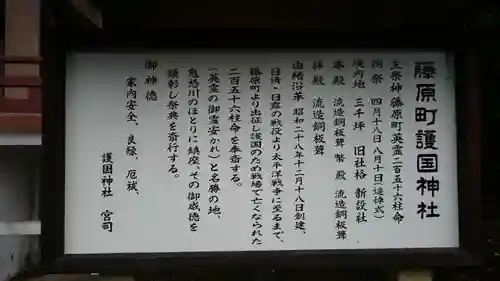 藤原町護国神社
主祭神 藤原町英霊二百五十六柱命
例祭 四月十八日八月十日(追悼式)
境内地 三千坪 旧社格 新設社
本殿 流造銅板葺 幣殿 流造銅板葺
拝殿 流造銅板葺
由緒沿革 昭和二十八年十二月十八日創建、
日清・日露の戦役より太平洋戦争に至るまで、
藤原町より出征し護国のため戦場で亡くなられた
二百五十六柱命を奉斎する。
(英霊の御霊安かれ)と名勝の地、
鬼怒川のほとりに鎮座、その御威徳を
顕彰し祭典を斎行する。
御神徳
家内安全、良縁、厄祓、
護国神社 宮司